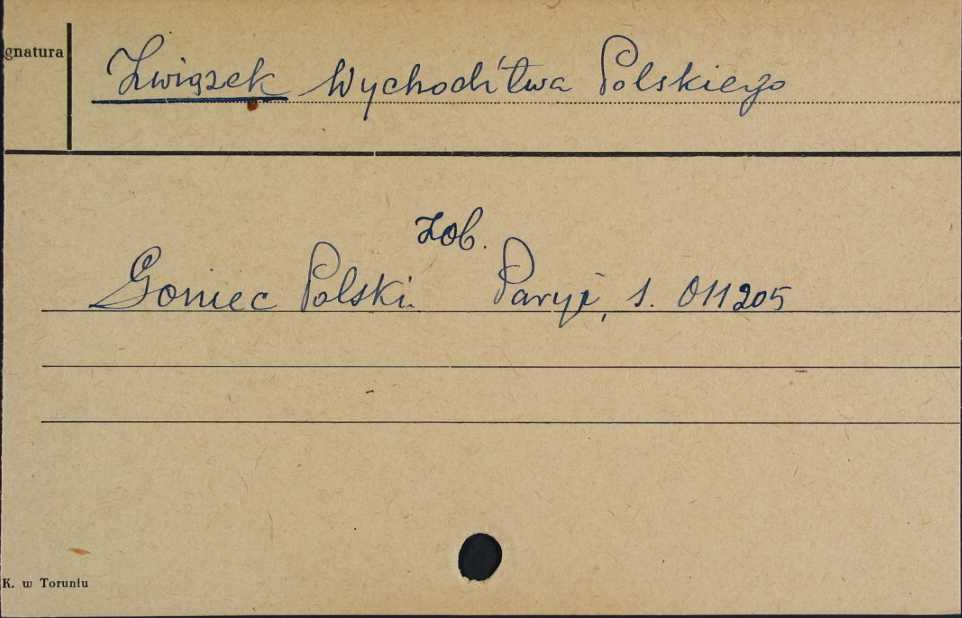 gnatura
Związek Wychodźtwa Polskiego
zob.
Goniec Polski Paryż, s. 011205
K. w Toruniu